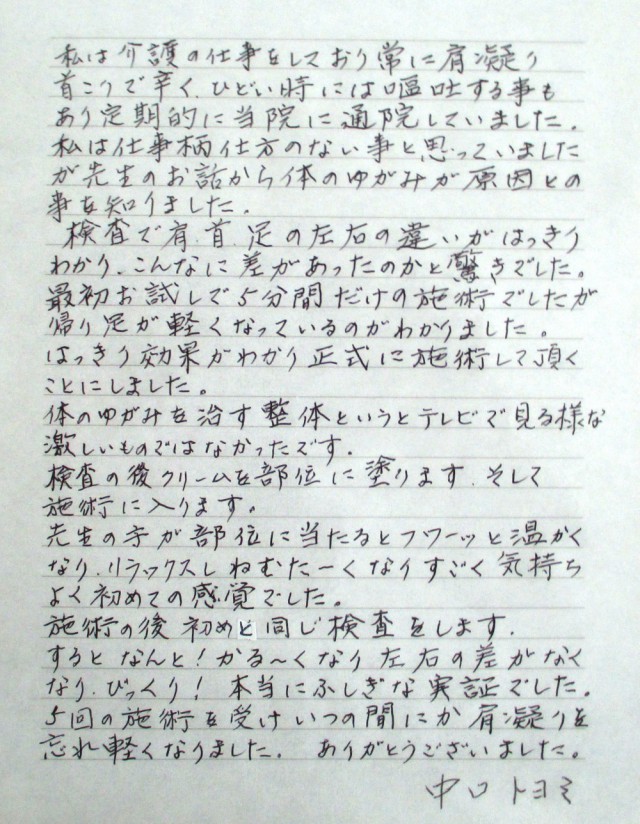 私は介護の仕事をしており常に肩凝り
首こりで辛く、ひどい時には嘔吐する事も
あり定期的に当院に通院していました。
私は仕事柄仕方のない事と思っていました
が先生のお話から体のゆがみが原因との
事を知りました。
検査で肩、首、足の左右の違いがはっきり
わかり、こんなに差があったのかと驚きでした。
最初お試しで5分間だけの施術でしたが
帰り足が軽くなっているのがわかりました。
はっきり効果がわかり正式に施術して頂く
ことにしました。
体のゆがみを治す整体というとテレビで見る様な
激しいものではなかったです。
検査の後クリームを部位に塗ります、そして
施術に入ります。
先生の手が部位に当たるとフワーッと温かく
なり、リラックスしねむたーくなりすごく気持ち
よく初めての感覚でした。
施術の後初めと同じ検査をします、
するとなんと！かる〜くなり左右の差がなく
なり、びっくり！本当にふしぎな実証でした。
5回の施術を受けいつの間にか肩凝りを
忘れ軽くなりました。 ありがとうございました。
中口トヨミ